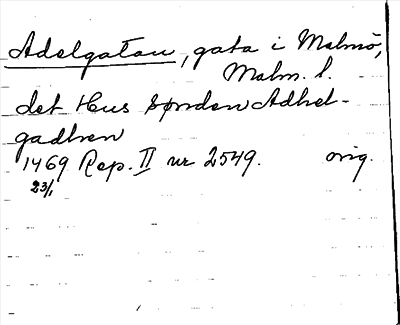 Adelgatan, gata i Malmö,
Malm. l.
det Hus sønden Adhel-
gadhen
1469 Rep. II nr 2549. orig.
23/1